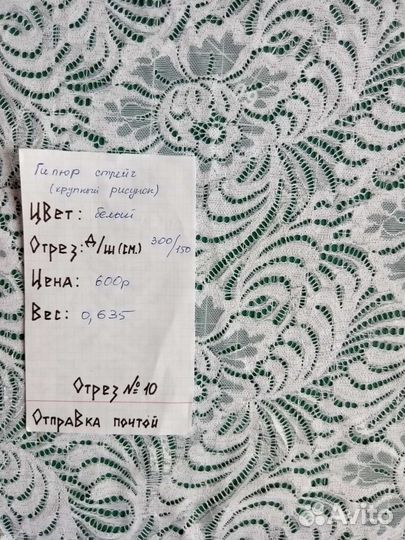 Гипюр стрейч
(крупный рисунок)
Цвет: белый
Отрез: Д/Ш(см.) 300/150
Цена: 600р
Вес: 0,635
Отрез № 10
Отправка почтой
Avito